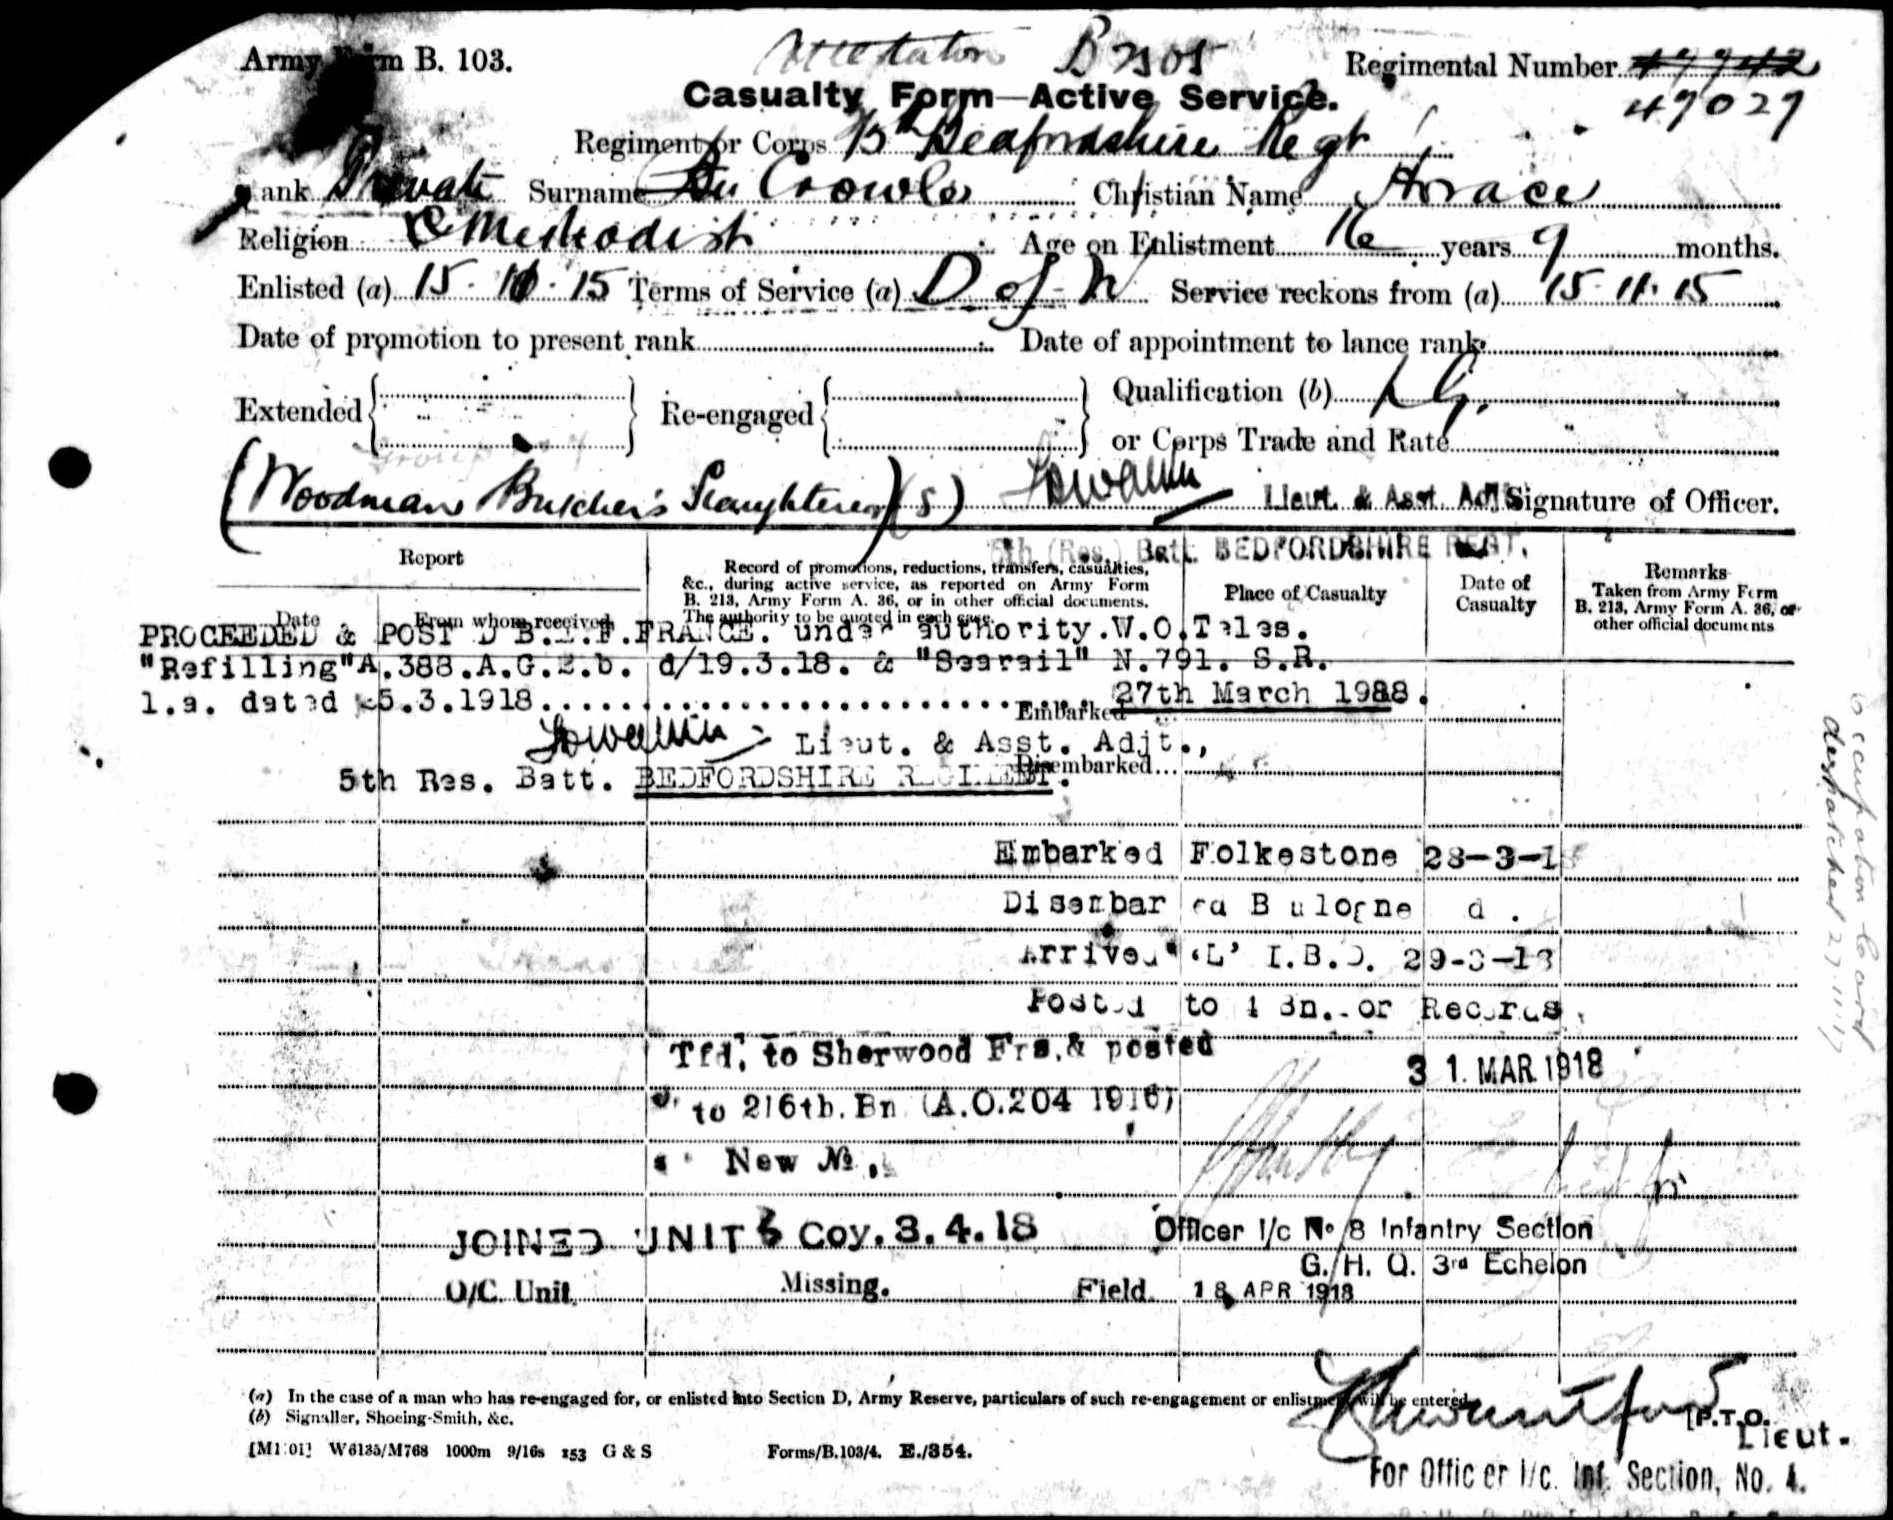 Army Form B. 103.
B 2505
Regimental Number 47942
Casualty Form—Active Service.
49029
Regiment or Corps Bedfordshire Regt
Rank Private Surname Crowle Christian Name Horace
Religion C Methodist Age on Enlistment 16 years 9 months.
Enlisted (a) 15. 11. 15 Terms of Service (a) D of W Service reckons from (a) 15. 11. 15
Date of promotion to present rank Date of appointment to lance rank
Extended Re-engaged Qualification (b)
or Corps Trade and Rate
(Woodman Butcher's Slaughterer) (S) Lieut. & Asst. Adjt. Signature of Officer.
5th (Res.) Batt. BEDFORDSHIRE REGT.
Report
Date
From whom received
Record of promotions, reductions, transfers, casualties, &c., during active service, as reported on Army Form B. 213, Army Form A. 36, or in other official documents. The authority to be quoted in each case.
Place of Casualty
Date of Casualty
Remarks
Taken from Army Form B. 213, Army Form A. 36, or other official documents
PROCEEDED & POSTED B.E.F. FRANCE. under authority.W.O.Teles.
"Refilling"A.388.A.G.2.b. d/19.3.18. & "Searail" N.791. S.R.
1.a. dated 25.3.1918 27th March 1918.
Embarked
Lieut. & Asst. Adjt.,
Disembarked
5th Res. Batt. BEDFORDSHIRE REGIMENT.
Embarked Folkestone 28-3-18
Disembarked Boulogne d .
Arrived 'L' I.B.D. 29-3-18
Posted to 4 Bn. for Records
Tfd. to Sherwood Frs. & posted
31. MAR 1918
to 2/6th. Bn (A.O.204 1916)
New No.
JOINED UNIT Coy. 3.4.18
Officer i/c No 8 Infantry Section
G. H. Q. 3rd Echelon
O/C. Unit. Missing. Field. 18 APR 1918
(a) In the case of a man who has re-engaged for, or enlisted into Section D, Army Reserve, particulars of such re-engagement or enlistment will be entered.
(b) Signaller, Shoeing-Smith, &c.
[P.T.O.
Lieut.
W6135/M768 1000m 9/16s 153 G & S Forms/B.103/4. E./354.
For Officer i/c. Inf. Section, No. 4.
Occupation Card
despatched